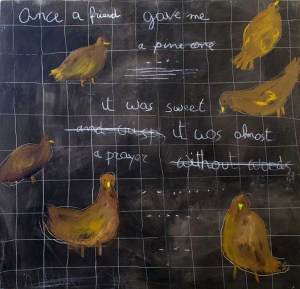 Once a friend gave me
a pine cone
it was sweet
and crisp, it was almost
a prayer without words